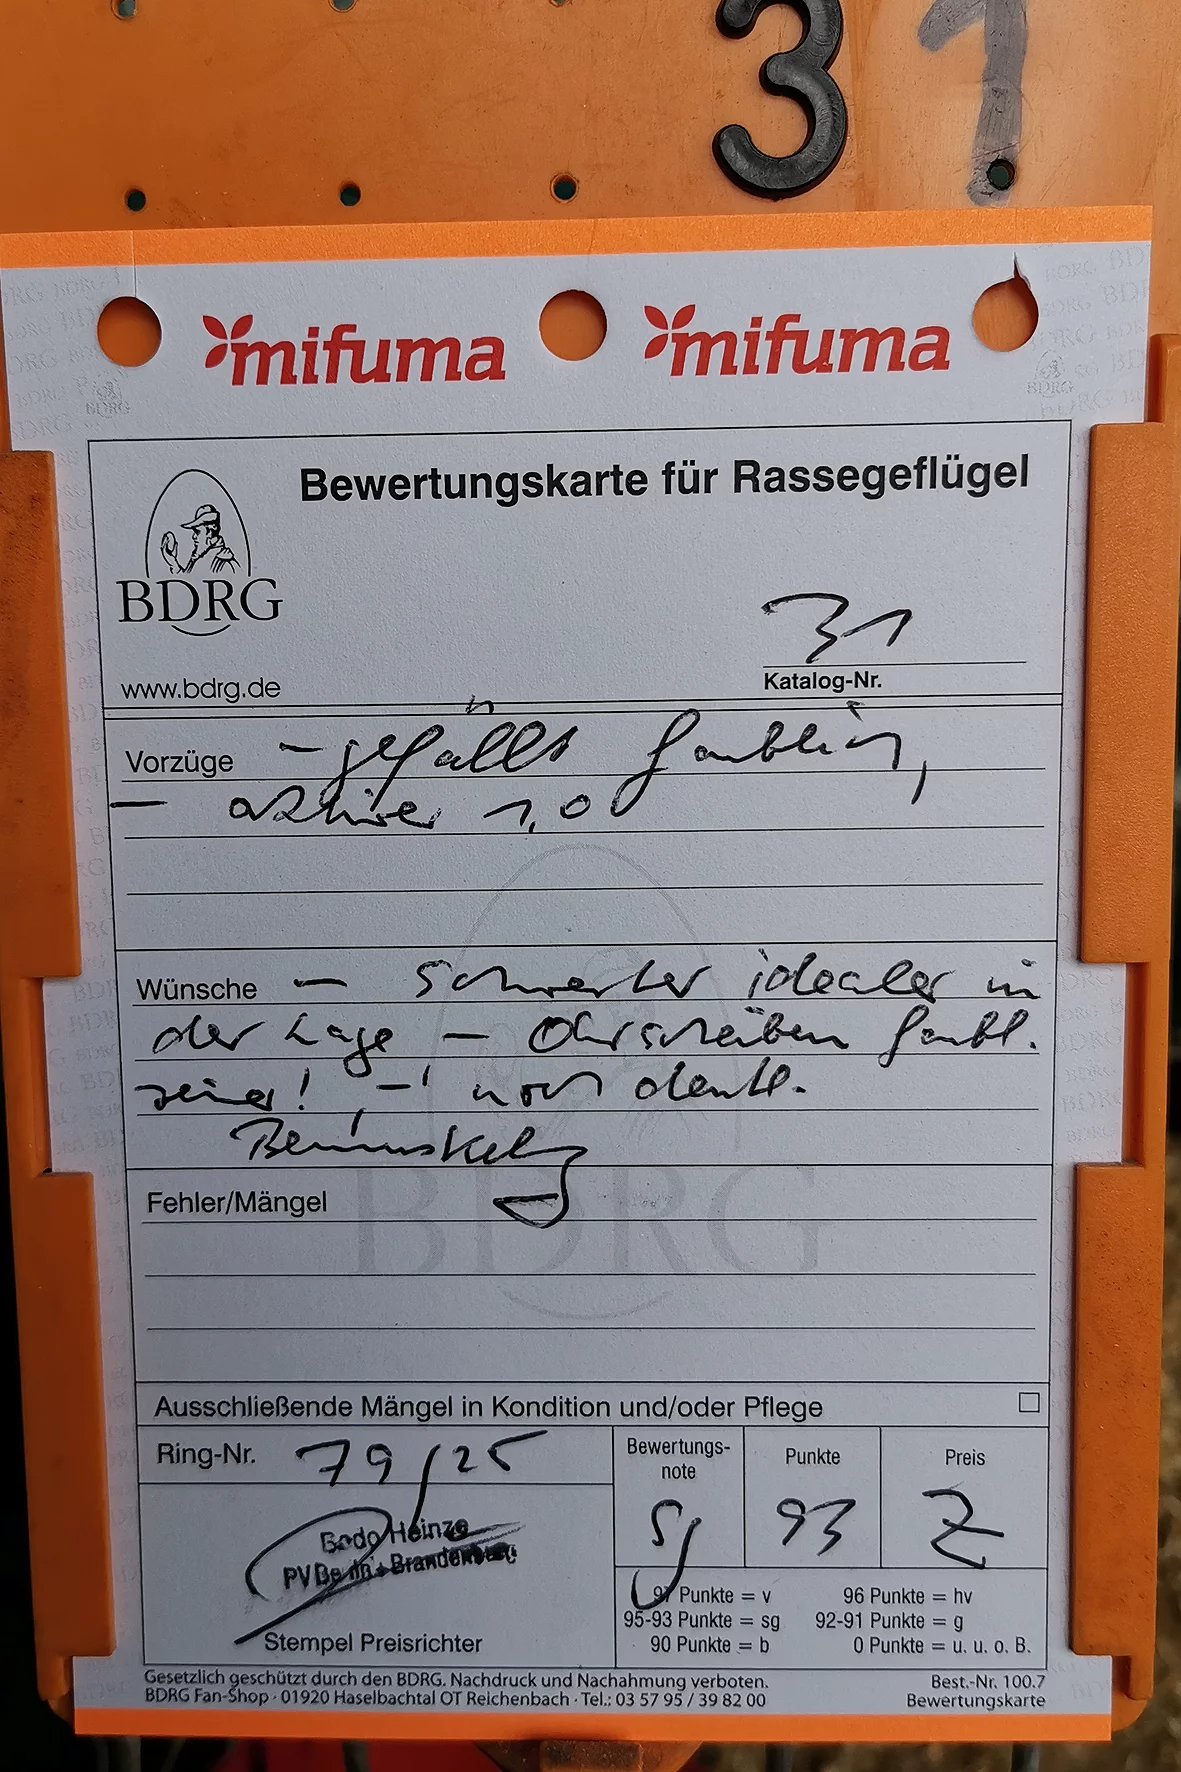 31
mifuma mifuma
Bewertungskarte für Rassegeflügel
BDRG
www.bdrg.de
31
Katalog-Nr.
Vorzüge – gefällt farblich,
– aktiver 1,0
Wünsche – Schwerter idealer in
der Lage – Ohrscheiben farbl.
reiner! – noch deutl.
Beinmuskel
Fehler/Mängel
BDRG
Ausschließende Mängel in Kondition und/oder Pflege
Ring-Nr. 79/25
Bewertungs-
note
Punkte
Preis
Sg 93 Z
Bodo Heinze
PV Berlin + Brandenburg
Stempel Preisrichter
97 Punkte = v 96 Punkte = hv
95-93 Punkte = sg 92-91 Punkte = g
90 Punkte = b 0 Punkte = u. u. o. B.
Gesetzlich geschützt durch den BDRG. Nachdruck und Nachahmung verboten.
BDRG Fan-Shop · 01920 Haselbachtal OT Reichenbach · Tel.: 03 57 95 / 39 82 00
Best.-Nr. 100.7
Bewertungskarte